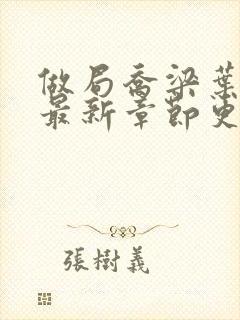 做局喬梁葉
最新章節更
張樹義